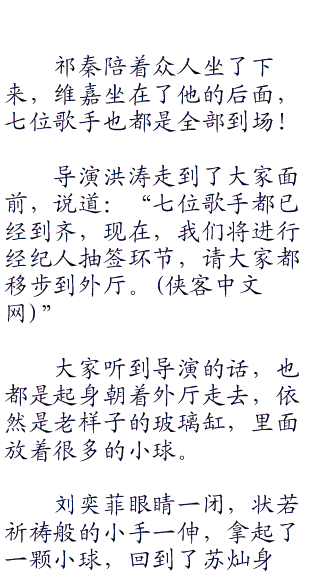 祁秦陪着众人坐了下
来，维嘉坐在了他的后面，
七位歌手也都是全部到场！
导演洪涛走到了大家面
前，说道：“七位歌手都已
经到齐，现在，我们将进行
经纪人抽签环节，请大家都
移步到外厅。(侠客中文
网)”
大家听到导演的话，也
都是起身朝着外厅走去，依
然是老样子的玻璃缸，里面
放着很多的小球。
刘奕菲眼睛一闭，状若
祈祷般的小手一伸，拿起了
一颗小球，回到了苏灿身